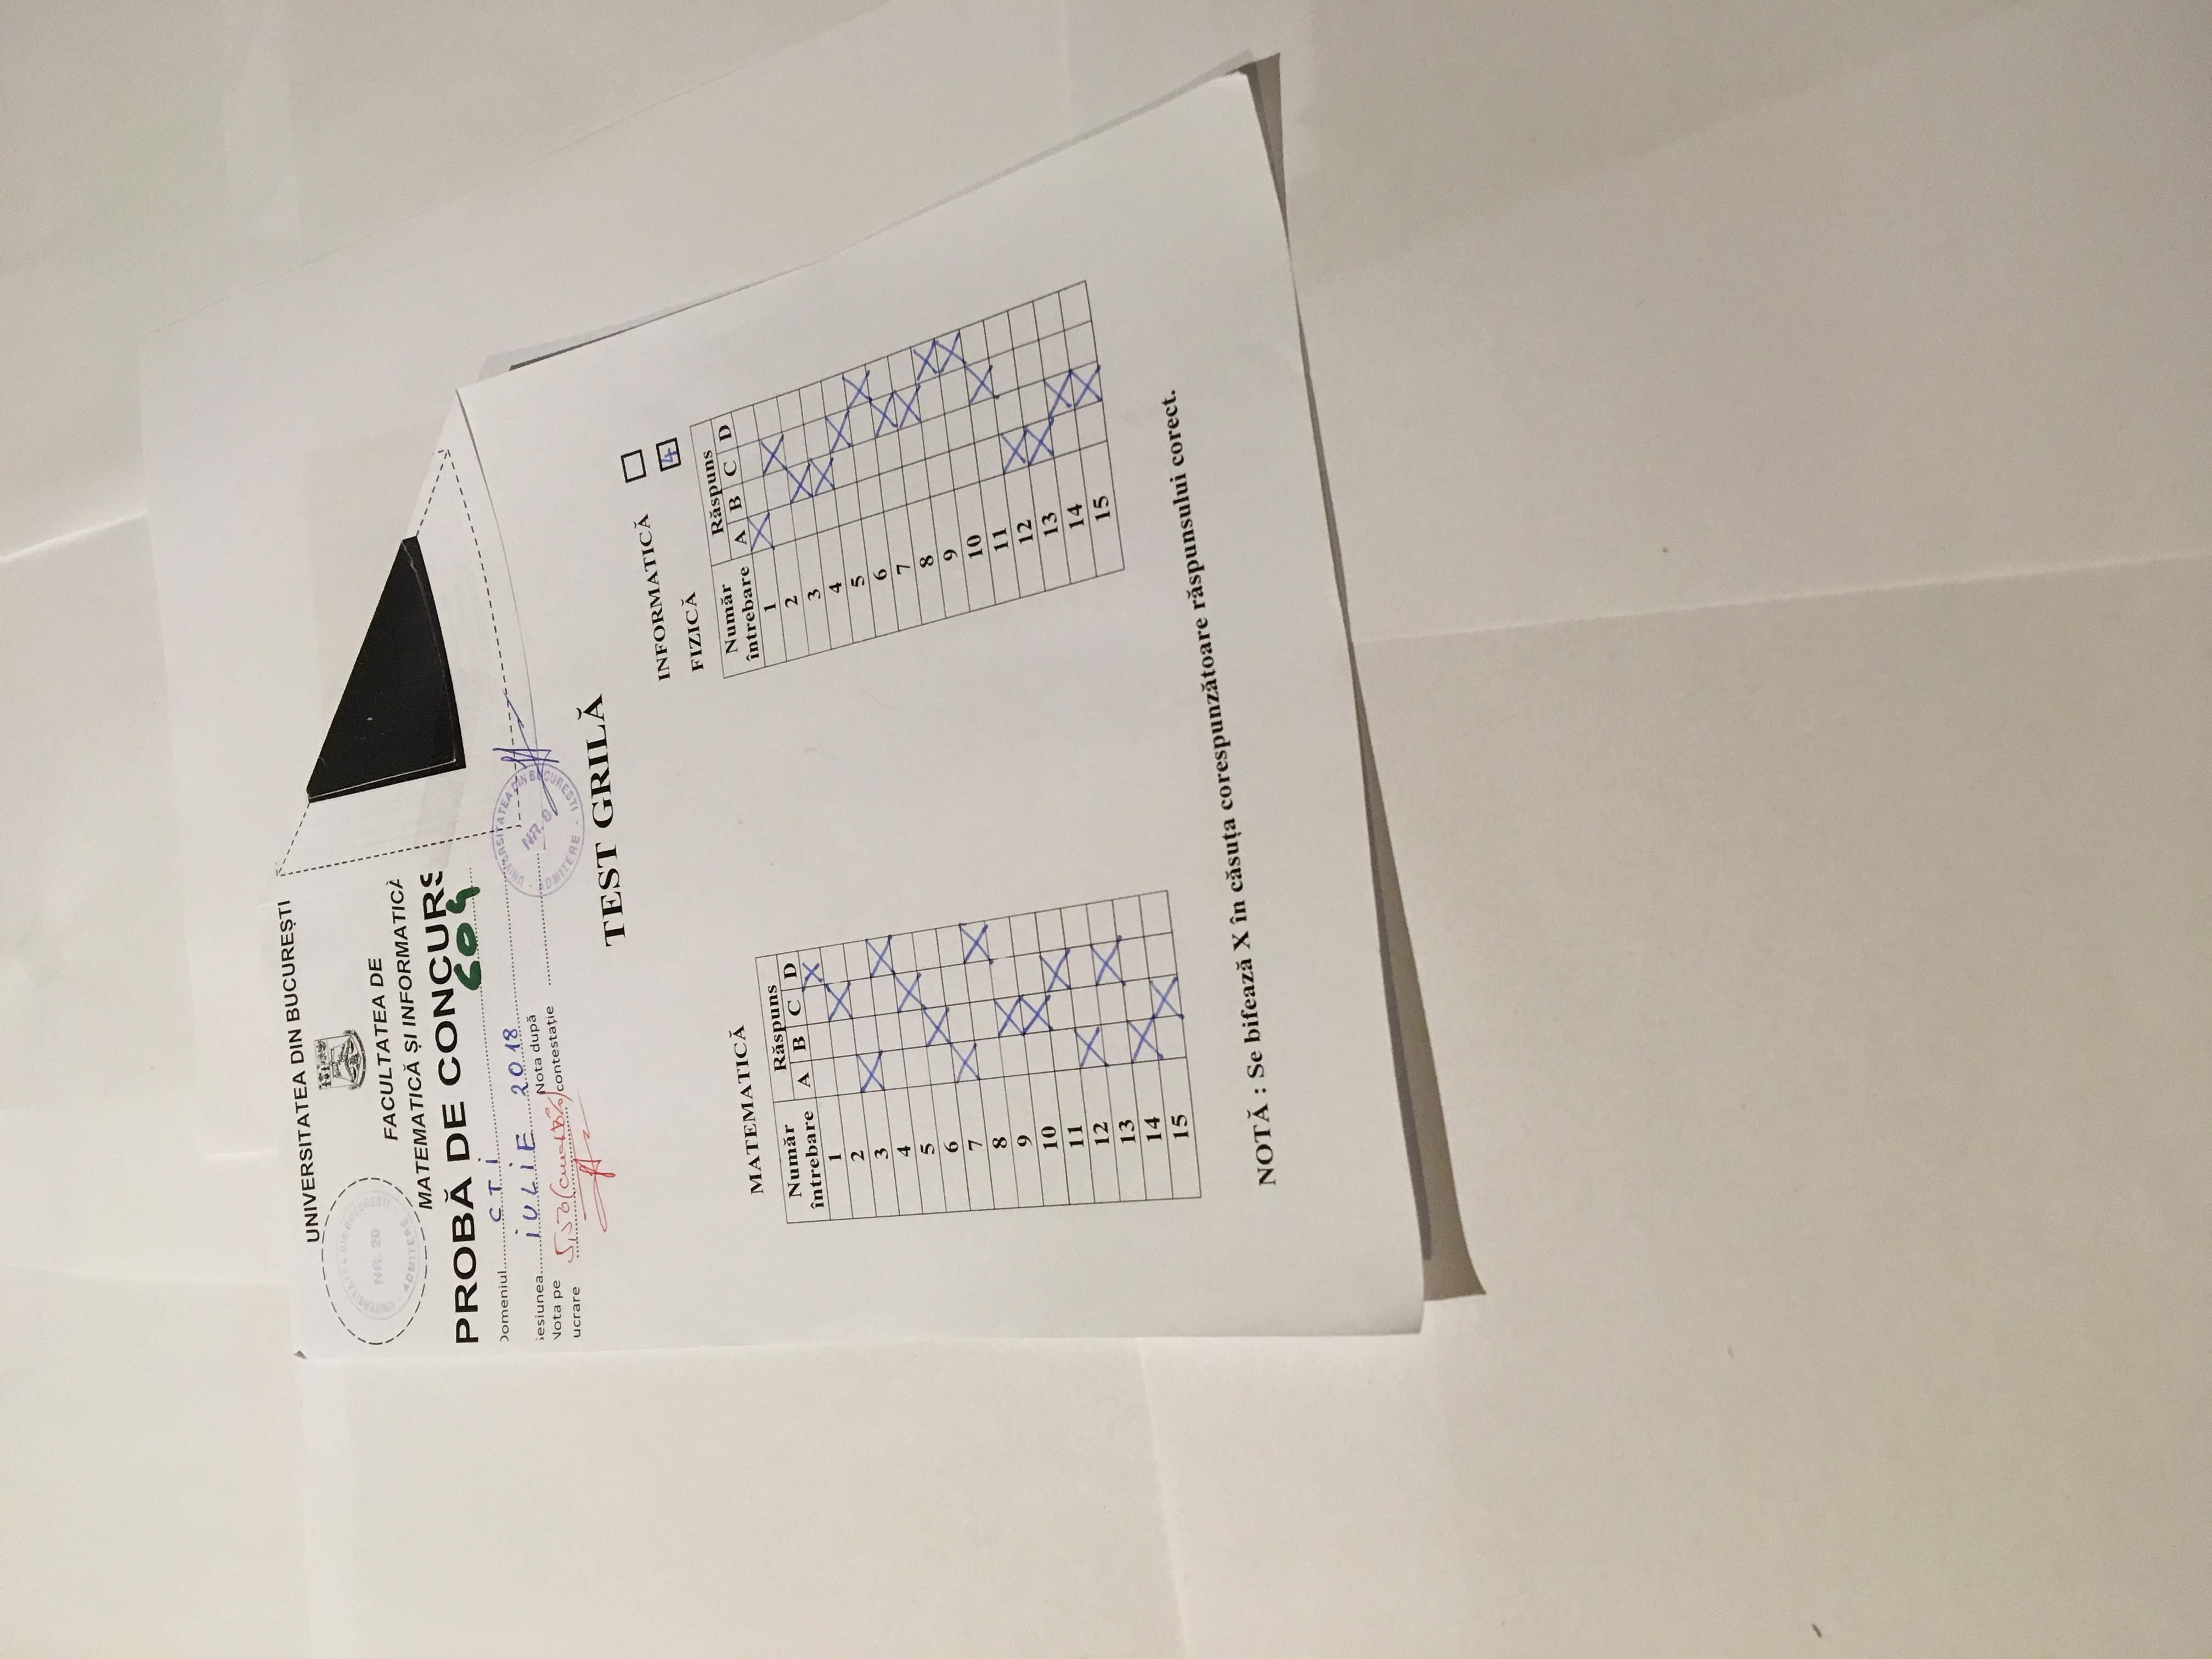 UNIVERSITATEA DIN BUCUREȘTI
UNIVERSITATEA DIN BUCUREȘTI
NR. 20
ADMITERE
FACULTATEA DE
MATEMATICĂ ȘI INFORMATICĂ
PROBĂ DE CONCURS
604
Domeniul CTI
Sesiunea IULIE 2018
Nota pe lucrare 5,50
Nota după contestație
UNIVERSITATEA DIN BUCURESTI
NR.
ADMITERE
TEST GRILĂ
INFORMATICĂ
FIZICĂ 4
MATEMATICĂ
Număr întrebare Răspuns
A B C D
1 X
2 X
3 X
4 X
5 X
6 X
7 X
8 X
9 X
10 X
11 X
12 X
13 X
14 X
15 X
Număr întrebare Răspuns
A B C D
1 X
2 X
3 X
4 X
5 X
6 X
7 X
8 X
9 X
10 X
11 X
12 X
13 X
14 X
15 X
NOTĂ : Se bifează X în căsuța corespunzătoare răspunsului corect.